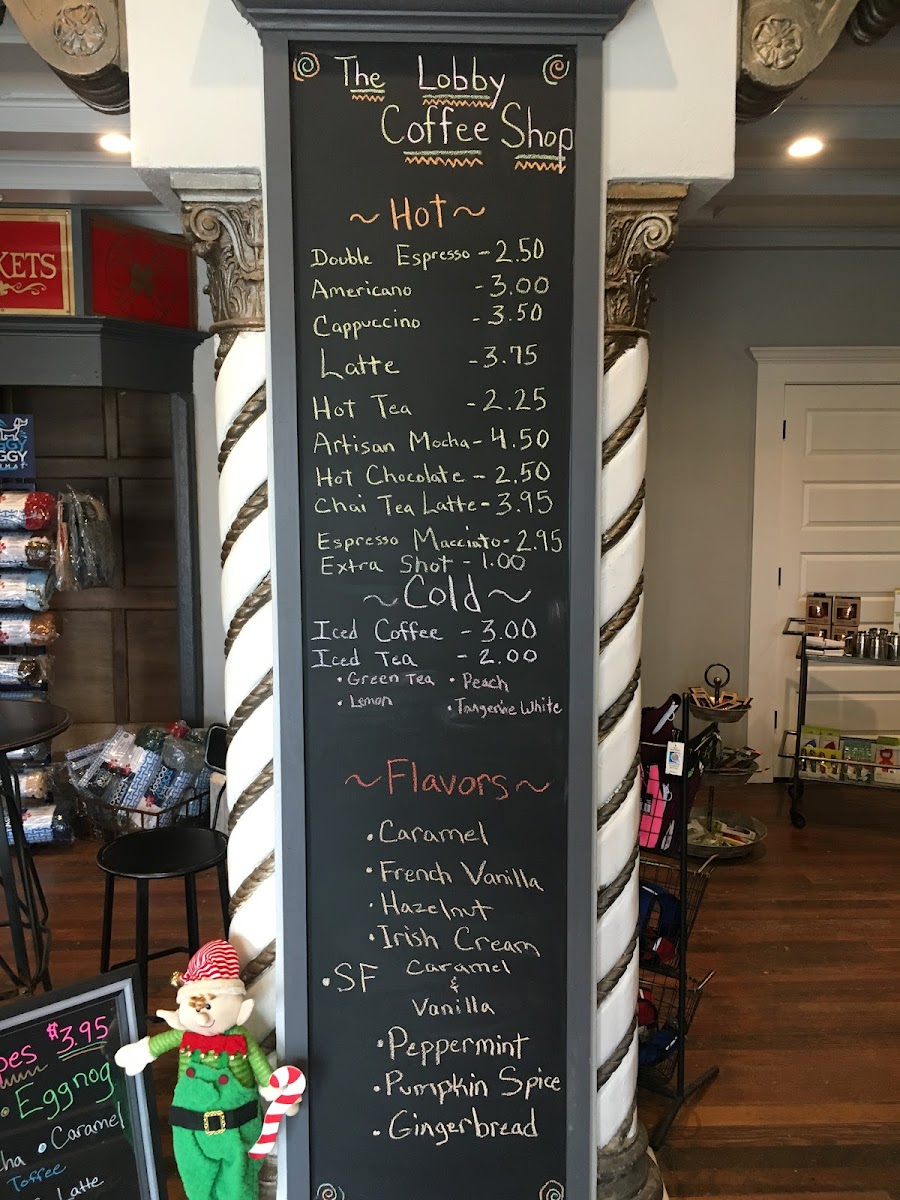 The Lobby
Coffee Shop
~ Hot ~
Double Espresso - 2.50
Americano - 3.00
Cappuccino - 3.50
Latte - 3.75
Hot Tea - 2.25
Artisan Mocha - 4.50
Hot Chocolate - 2.50
Chai Tea Latte - 3.95
Espresso Macciato - 2.95
Extra Shot - 1.00
~ Cold ~
Iced Coffee - 3.00
Iced Tea - 2.00
• Green Tea • Peach
• Lemon • Tangerine White
~ Flavors ~
• Caramel
• French Vanilla
• Hazelnut
• Irish Cream
• SF Caramel
&
Vanilla
• Peppermint
• Pumpkin Spice
• Gingerbread
KETS
GGY
$3.95
• Eggnog
• Caramel
Toffee
Latte